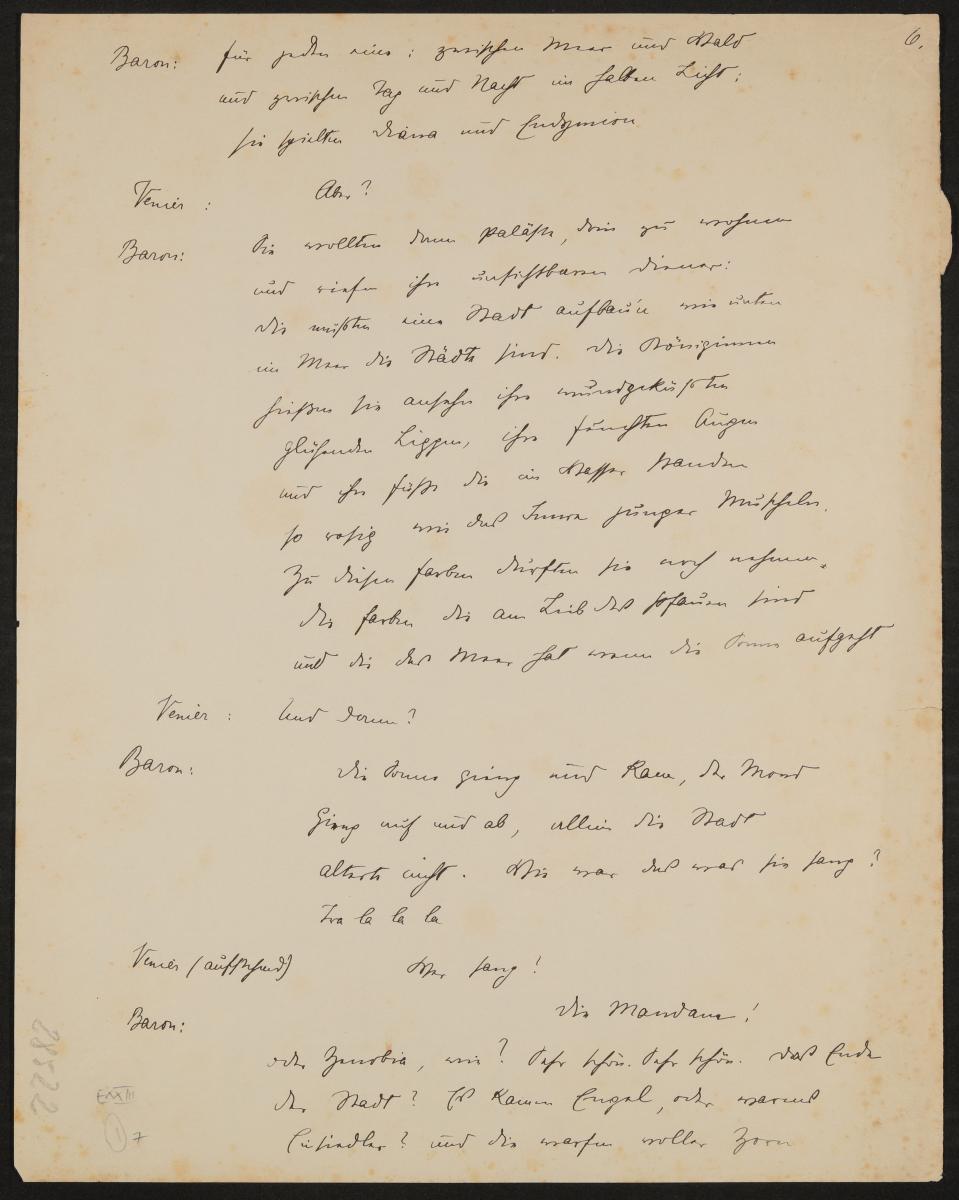 6.
Baron: für jeden eines: zwischen Meer und Wald
und zwischen Tag und Nacht im halben Licht:
sie spielten Diana und Endymion
Venier: Aber?
Baron: Sie wollten dann Paläste, drin zu wohnen
und riefen ihre unsichtbaren Diener:
die mußten eine Stadt aufbau'n wie unten
im Meer die Städte sind. Die Königinnen
hießen sie ansehn ihre mundgeküßten
glühenden Lippen, ihre feuchten Augen
und ihre Füße die im Wasser standen
so rosig wie das Innre junger Muscheln.
Zu diesen Farben durften sie noch nehmen
die Farben die am Leib des Pfauen sind
und die das Meer hat wenn die Sonne aufgeht
Venier: Und dann?
Baron: Die Sonne gieng und kam, der Mond
Gieng auf und ab, allein die Stadt
alterte nicht. Wie war das was sie sang?
Tra la la la
Venier (aufstehend) Wer sang!
Baron: Die Mandane!
oder Zenobia, wie? Sehr schön. Sehr schön. Das Ende
der Stadt? Es kamen Engel, oder warens
Einsiedler? und die warfen voller Zorn
28522
E XIII
7